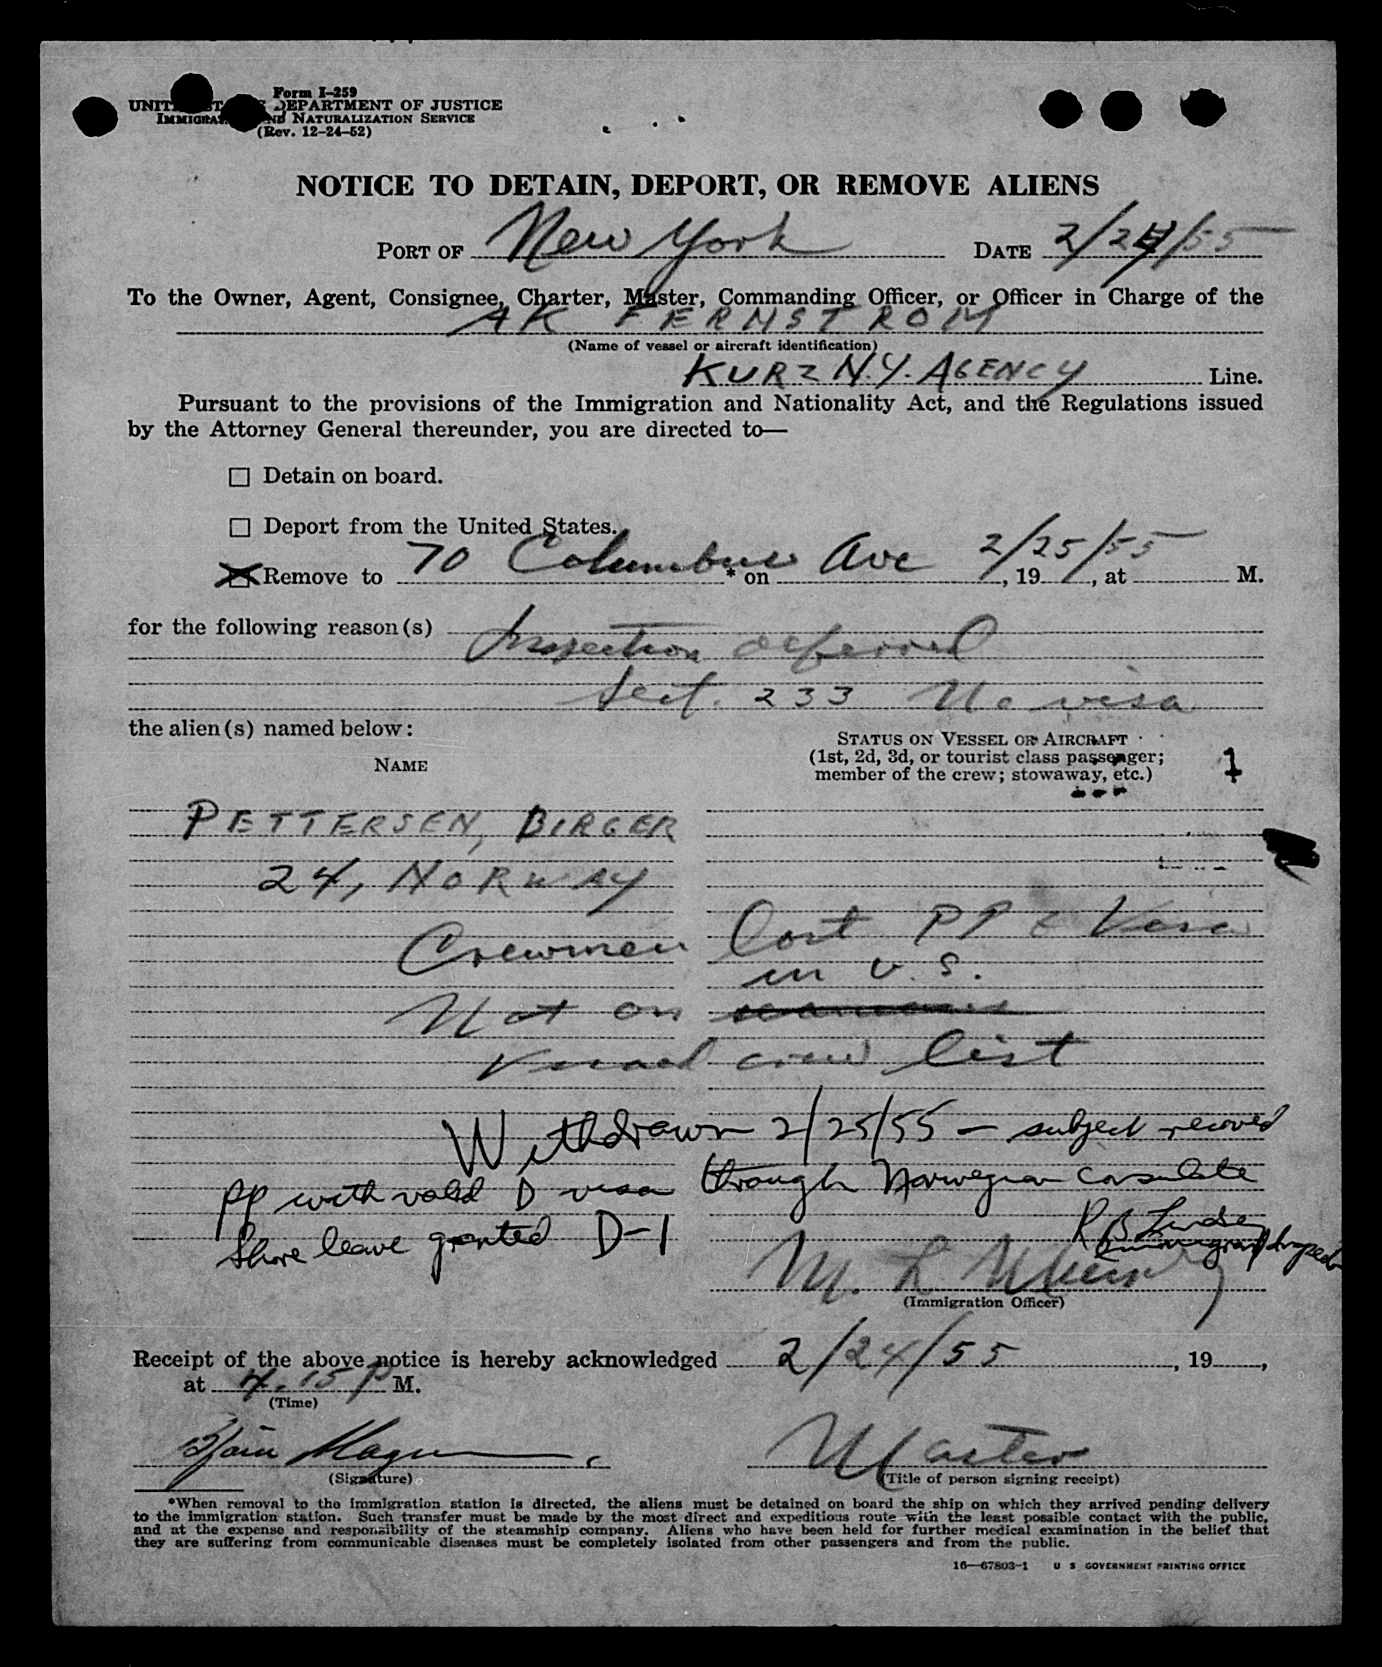 Form I-259
UNITED STATES DEPARTMENT OF JUSTICE
IMMIGRATION AND NATURALIZATION SERVICE
(Rev. 12-24-52)
NOTICE TO DETAIN, DEPORT, OR REMOVE ALIENS
PORT OF New York DATE 2/24/55
To the Owner, Agent, Consignee, Charter, Master, Commanding Officer, or Officer in Charge of the
AK FERNSTROM
(Name of vessel or aircraft identification)
KURZ N.Y. AGENCY Line.
Pursuant to the provisions of the Immigration and Nationality Act, and the Regulations issued
by the Attorney General thereunder, you are directed to—
Detain on board.
Deport from the United States.
Remove to 70 Columbus * on Ave 2/25/55, 19, at M.
for the following reason(s)
Inspection deferred
Sect. 233 No visa
the alien(s) named below:
STATUS ON VESSEL OR AIRCRAFT
(1st, 2d, 3d, or tourist class passenger;
member of the crew; stowaway, etc.)
NAME
1
PETTERSEN, BIRGER
24, NORWAY
Crewmen lost PP & Visa
in U.S.
Not on
Vessel crew list
Withdrawn 2/25/55 — subject received
pp with valid D visa through Norwegian Consulate
Shore leave granted D-1
R B
M. L
(Immigration Officer)
Receipt of the above notice is hereby acknowledged 2/24/55, 19,
at 4.15 P M.
(Time)
Master
(Signature) (Title of person signing receipt)
*When removal to the immigration station is directed, the aliens must be detained on board the ship on which they arrived pending delivery
to the immigration station. Such transfer must be made by the most direct and expeditious route with the least possible contact with the public,
and at the expense and responsibility of the steamship company. Aliens who have been held for further medical examination in the belief that
they are suffering from communicable diseases must be completely isolated from other passengers and from the public.
16—67803-1 U S GOVERNMENT PRINTING OFFICE